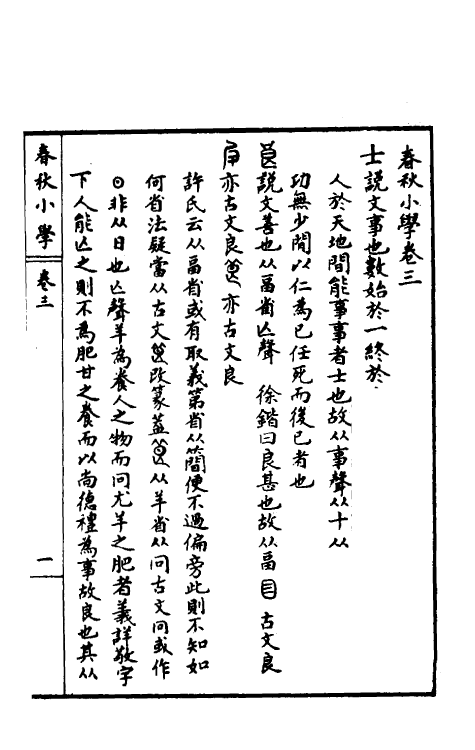 春秋小學卷三
士說文事也數始於一終於
人於天地間能事事者士也故从事聲从十从
功無少間以仁為己任死而後已者也
說文善也从畗省亾聲　徐鍇曰良甚也故从畗　目　古文良
亦古文良　亦古文良
許氏云从畗省或有取義第省从簡便不過偏旁此則不知如
何省法疑當从古文　改篆蓋　从羊省从　冏古文囧或作
⊙非从日也亾聲羊為養人之物而冏尤羊之肥者義詳敬字
下人能亾之則不為肥甘之養而以尚德禮為事故良也其从
春秋小學　卷三
一